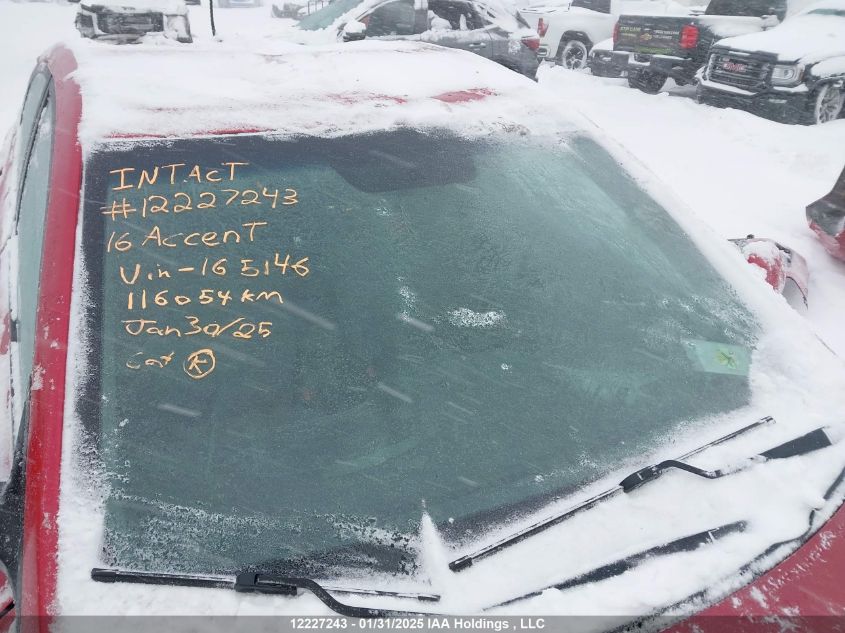 INTACT
#12227243
16 Accent
Vin-165146
116054 km
Jan 30/25
Cat K
GMC
12227243 - 01/31/2025 IAA Holdings , LLC